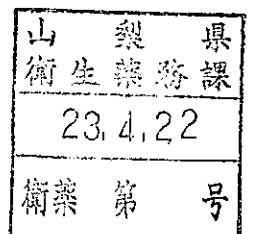 山梨県
衛生薬務課
23.4.22
衛薬 第 号